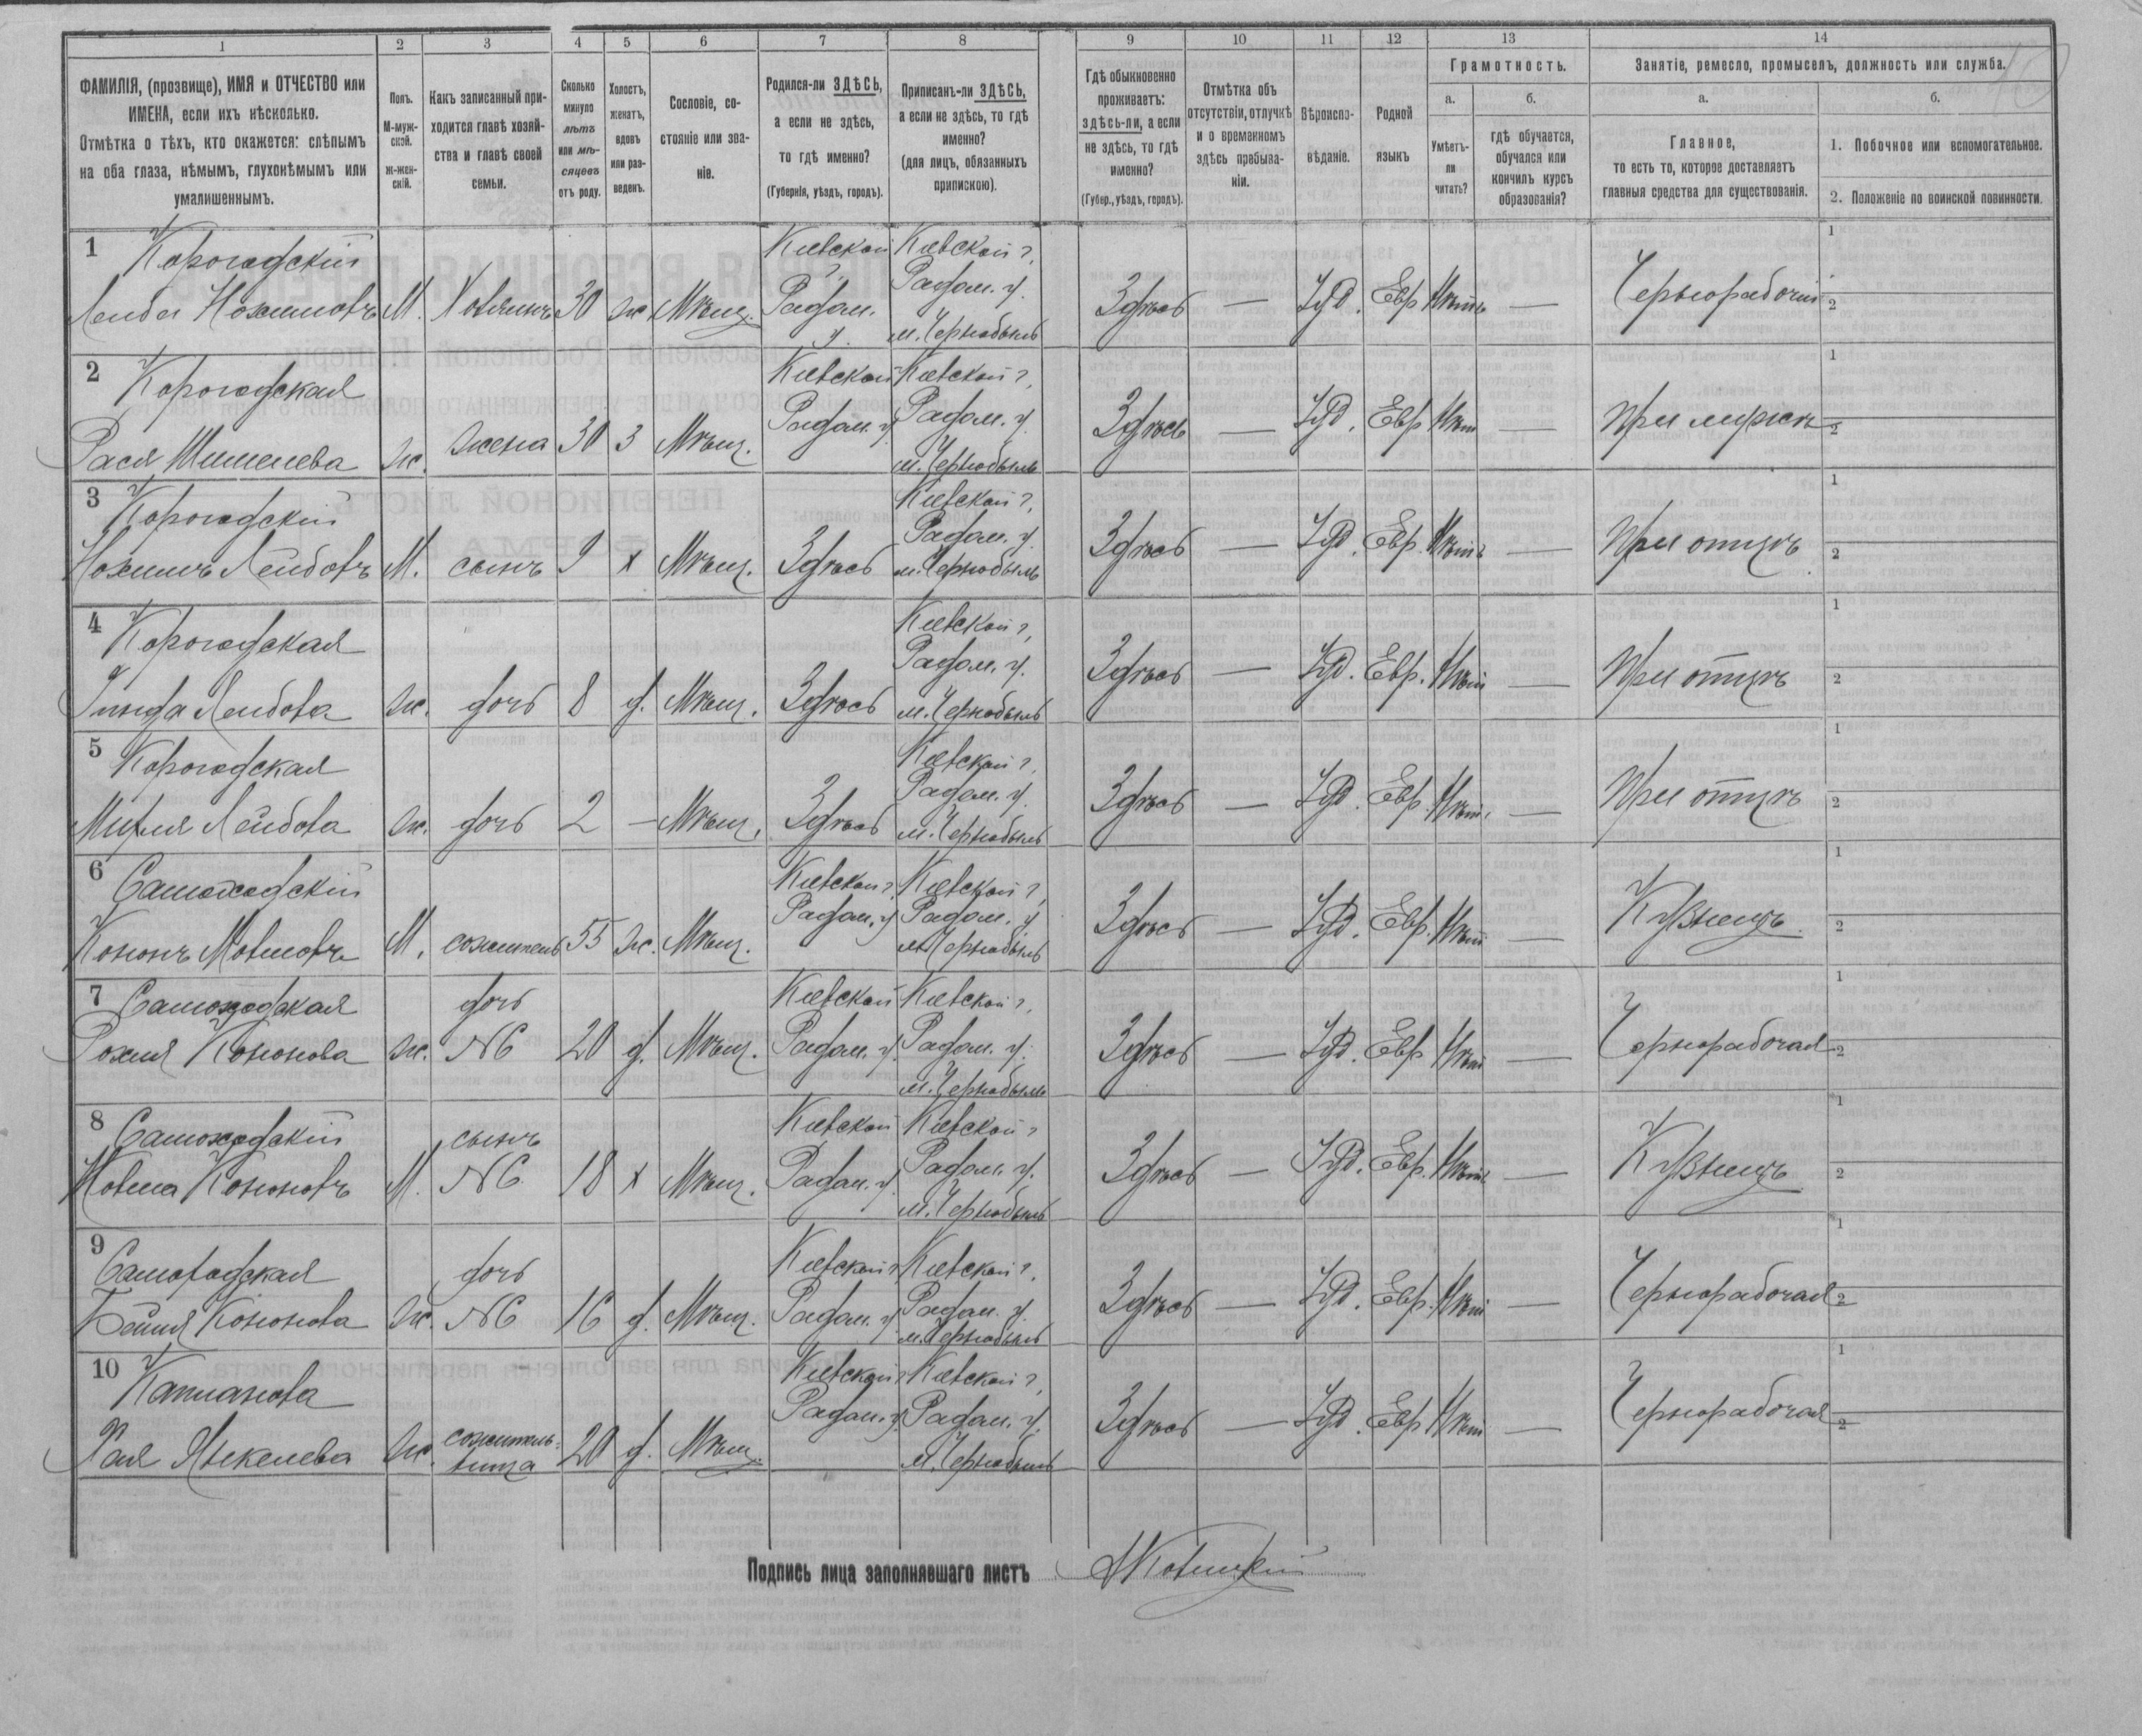 1 2 3 4 5 6 7 8 9 10 11 12 13 14
ФАМИЛІЯ, (прозвище), ИМЯ и ОТЧЕСТВО или
ИМЕНА, если ихъ нѣсколько.
Отмѣтка о тѣхъ, кто окажется: слѣпымъ
на оба глаза, нѣмымъ, глухонѣмымъ или
умалишеннымъ.
Полъ.
М-муж-
ской.
Ж-жен-
скій.
Какъ записанный при-
ходится главѣ хозяй-
ства и главѣ своей
семьи.
Сколько
минуло
лѣтъ
или мѣ-
сяцевъ
отъ роду.
Холостъ,
женатъ,
вдовъ
или раз-
веденъ.
Сословіе, со-
стояніе или зва-
ніе.
Родился-ли ЗДѢСЬ,
а если не здѣсь,
то гдѣ именно?
(Губернія, уѣздъ, городъ).
Приписанъ-ли ЗДѢСЬ,
а если не здѣсь, то гдѣ
именно?
(для лицъ, обязанныхъ
припискою).
Гдѣ обыкновенно
проживаетъ:
здѣсь-ли, а если
не здѣсь, то гдѣ
именно?
(Губер., уѣздъ, городъ).
Отмѣтка объ
отсутствіи, отлучкѣ
и о временномъ
здѣсь пребыва-
ніи.
Вѣроиспо-
вѣданіе.
Родной
языкъ
Грамотность.
а.
Умѣетъ-
ли
читать?
б.
гдѣ обучается,
обучался или
кончилъ курсъ
образованія?
Занятіе, ремесло, промыселъ, должность или служба.
а.
Главное,
то есть то, которое доставляетъ
главныя средства для существованія.
б.
1. Побочное или вспомогательное.
2. Положеніе по воинской повинности.
1 Корогодскій Кіевской Кіевской г.
Радом. Радом. у.
Лейба Нохимовъ М. Хозяинъ 30 ж Мѣщ. у. м. Чернобыль Здѣсь — Іуд. Евр Нѣтъ — Чернорабочій
2 Корогодская Кіевской Кіевской г.
Радом. у. Радом. у.
Рася Шимелева ж. жена 30 З Мѣщ. м. Чернобыль Здѣсь — Іуд. Евр Нѣт — При мужѣ
3 Корогодскій Кіевской г.
Радом. у.
Нохимъ Лейбовъ М. сынъ 9 х Мѣщ. Здѣсь м. Чернобыль Здѣсь — Іуд. Евр. Нѣтъ — При отцѣ
4 Корогодская Кіевской г.
Радом. у.
Гинда Лейбова ж. дочь 8 д. Мѣщ. Здѣсь м. Чернобыль Здѣсь — Іуд. Евр. Нѣт — При отцѣ
5 Корогодская Кіевской г.
Радом. у.
Лейбова ж. дочь 2 — Мѣщ. Здѣсь м. Чернобыль Здѣсь — Іуд. Евр. Нѣт. — При отцѣ
6 Самоходскій Кіевской г. Кіевской г.
Радом. у Радом. у
Кононъ Мовшовъ М. сожитель 55 ж. Мѣщ. м. Чернобыль Здѣсь — Іуд. Евр. Нѣт — Кузнецъ
7 Самоходская дочь Кіевской Кіевской г.
Рохля Кононова ж. №6 20 д. Мѣщ. Радом. у. Радом. у.
м. Чернобыль Здѣсь — Іуд. Евр Нѣт — Чернорабочая
8 Самоходскій сынъ Кіевской Кіевской г
Мовша Кононовъ М. №6 18 х Мѣщ. Радом. у. Радом. у.
м. Чернобыль Здѣсь — Іуд. Евр. Нѣтъ — Кузнецъ
9 Самоходская дочь Кіевской г Кіевской г.
Бейля Кононова ж. №6 16 д. Мѣщ. Радом. у. Радом. у.
м. Чернобыль Здѣсь — Іуд. Евр. Нѣт — Чернорабочая
10 Капланова Кіевской г Кіевской г.
Радом. у. Радом. у.
Хая ж. сожитель-
ница 20 д. Мѣщ. м. Чернобыль Здѣсь — Іуд. Евр Нѣт — Чернорабочая
Подпись лица заполнявшаго листъ